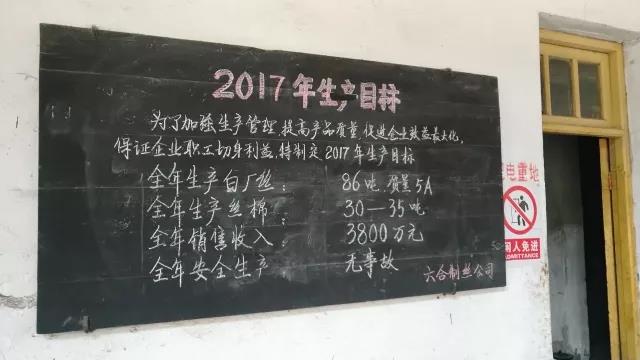 2017年生产目标
为了加强生产管理,提高产品质量,促进企业效益最大化,
保证企业职工切身利益,特制定2017年生产目标
全年生产白厂丝: 86吨 质量5A
全年生产丝棉: 30—35吨
全年销售收入: 3800万元
全年安全生产: 无事故
六合制丝公司
电重地
闲人免进
ADMITTANCE